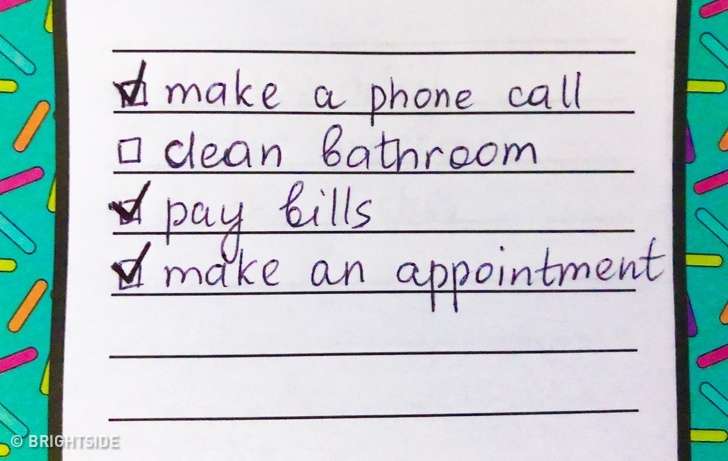 ☑ make a phone call
☐ clean bathroom
☑ pay bills
☑ make an appointment
© BRIGHTSIDE